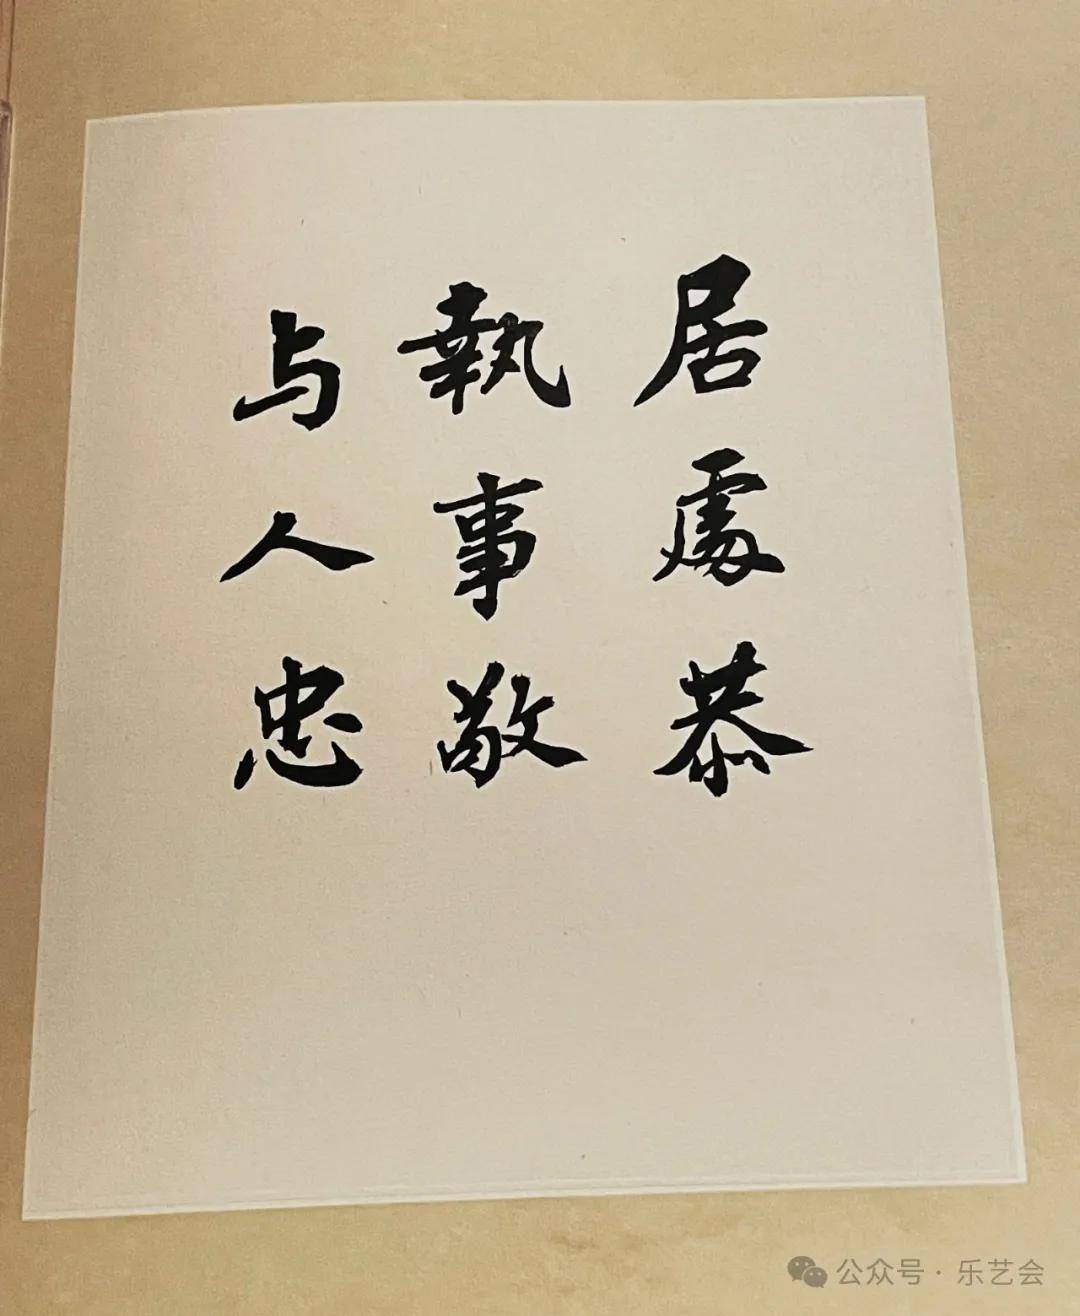 居處恭
執事敬
与人忠
公众号·乐艺会